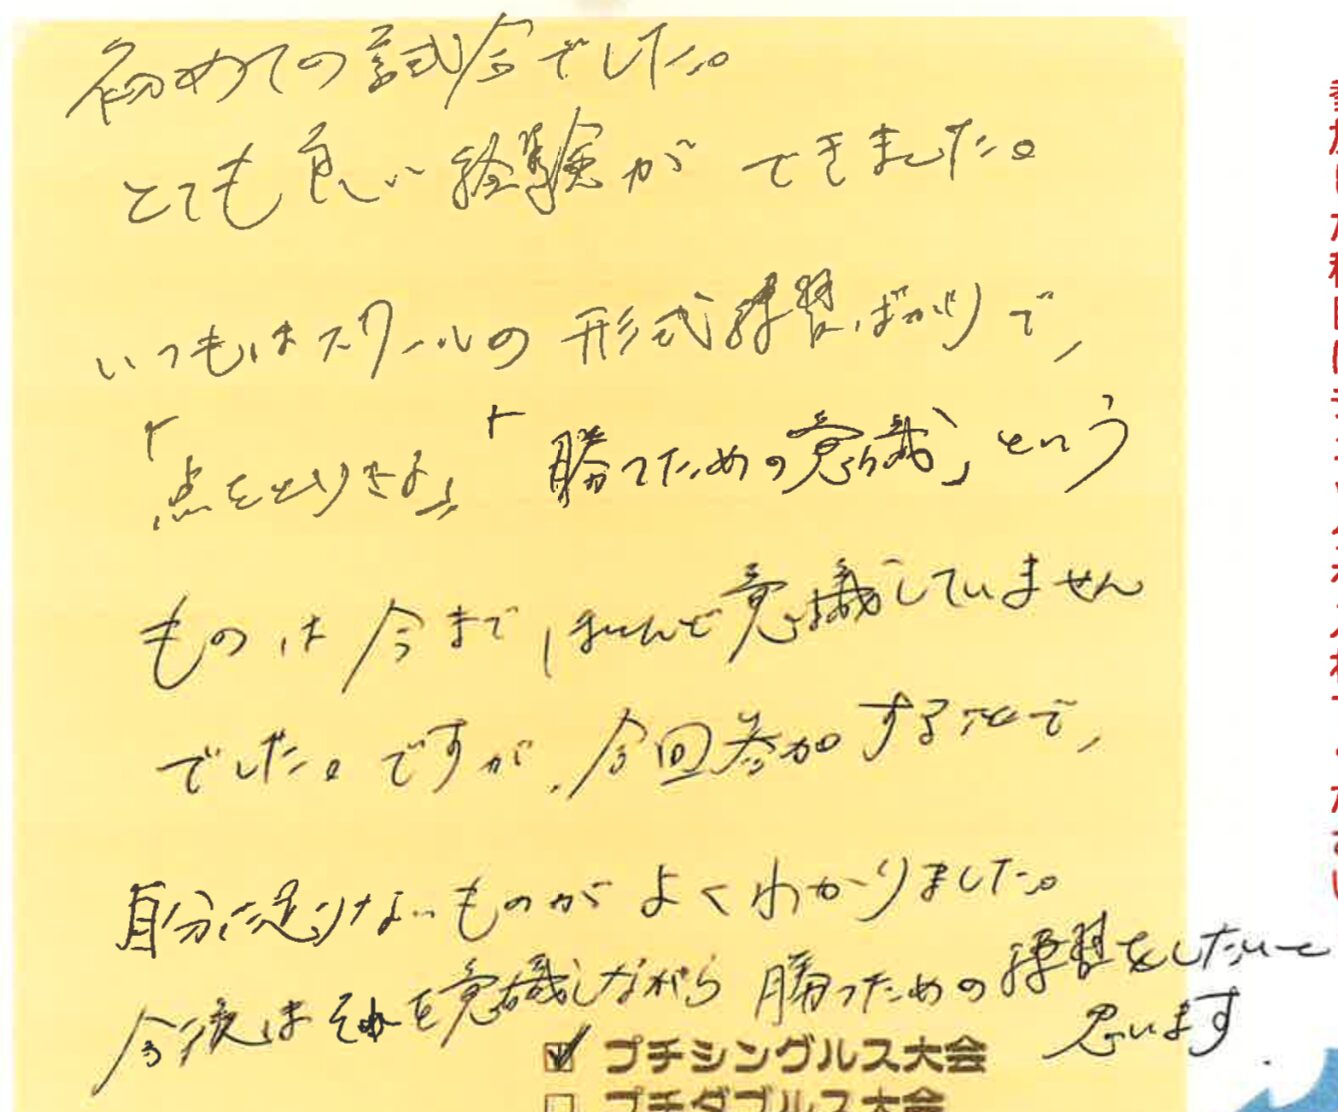 初めての試合でした。
とても良い経験ができました。
いつもはスクールの形式練習ばかりで、
「点をとりきる」「勝つための意識」という
ものは今までほとんど意識していません
でした。ですが、今回参加することで、
自分に足りないものがよくわかりました。
今後はそれを意識しながら勝つための練習をしたいと
思います
プチシングルス大会
プチダブルス大会